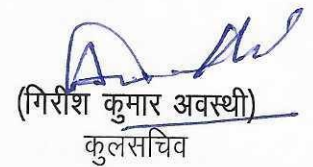 (गिरीश कुमार अवस्थी)
कुलसचिव